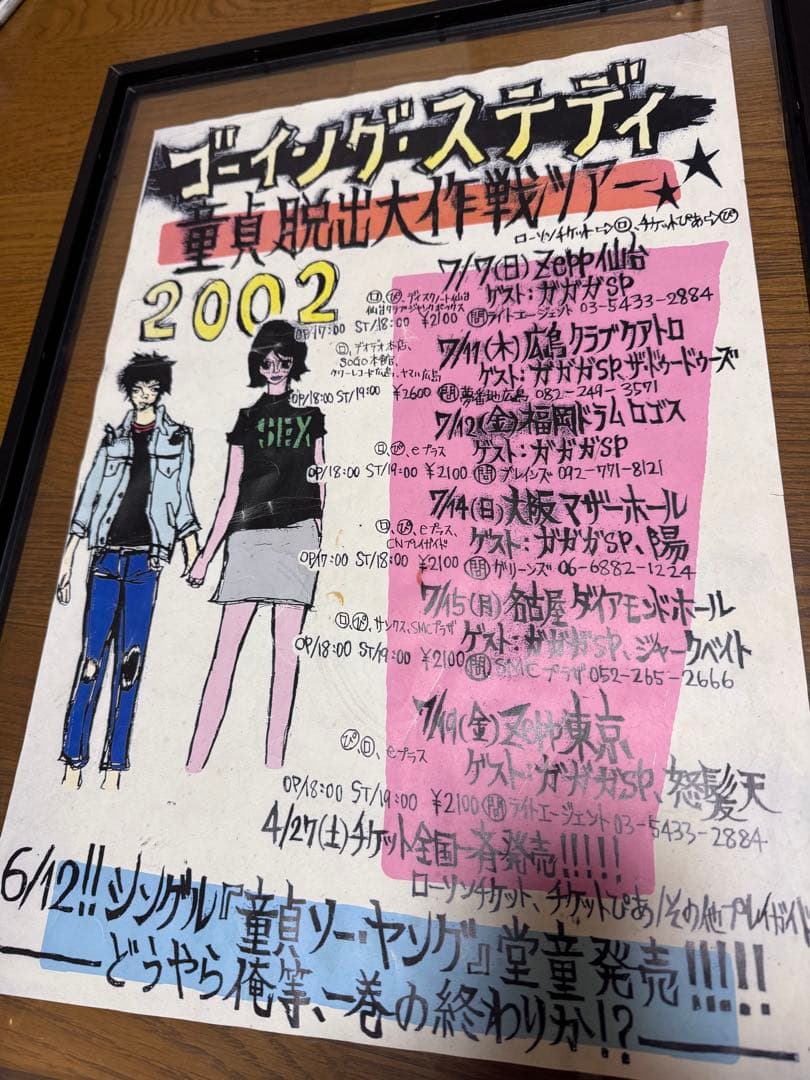 ゴーイング・ステディ
童貞脱出大作戦ツアー★★
2002
ローソンチケット⇨ロ、チケットぴあ⇨ぴ
7/7(日)Zepp仙台
ゲスト:ガガガSP
ロ、ぴ、ディスクノート仙台
OP/17:00 ST/18:00 ¥2100 問ライトエージェント 03-5433-2884
7/11(木)広島クラブクアトロ
ゲスト:ガガガSP、ザ・ドゥードゥーズ
ロ、デオデオ本店、
SOGO本館、
タワーレコード広島、ヤマハ広島
OP/18:00 ST/19:00 ¥2600 問夢番地広島 082-249-3571
7/12(金)福岡ドラムロゴス
ゲスト:ガガガSP
ロ、ぴ、eプラス
OP/18:00 ST/19:00 ¥2100 問ブレインズ 092-771-8121
7/14(日)大阪マザーホール
ゲスト:ガガガSP、陽
ロ、ぴ、eプラス、
CNプレイガイド
OP/17:00 ST/18:00 ¥2100 問グリーンズ 06-6882-1224
7/15(月)名古屋ダイアモンドホール
ゲスト:ガガガSP、ジャークベイト
ロ、ぴ、サンクス、SMCプラザ
OP/18:00 ST/19:00 ¥2100 問SMCプラザ 052-265-2666
7/19(金)Zepp東京
ゲスト:ガガガSP、怒髪天
ぴ、ロ、eプラス
OP/18:00 ST/19:00 ¥2100 問ライトエージェント 03-5433-2884
4/27(土)チケット全国一斉発売!!!!!
ローソンチケット、チケットぴあ/その他プレイガイド
6/12!!シングル『童貞ソー・ヤング』堂童発売!!!!!
―どうやら俺等、一巻の終わりか!?―
SEX